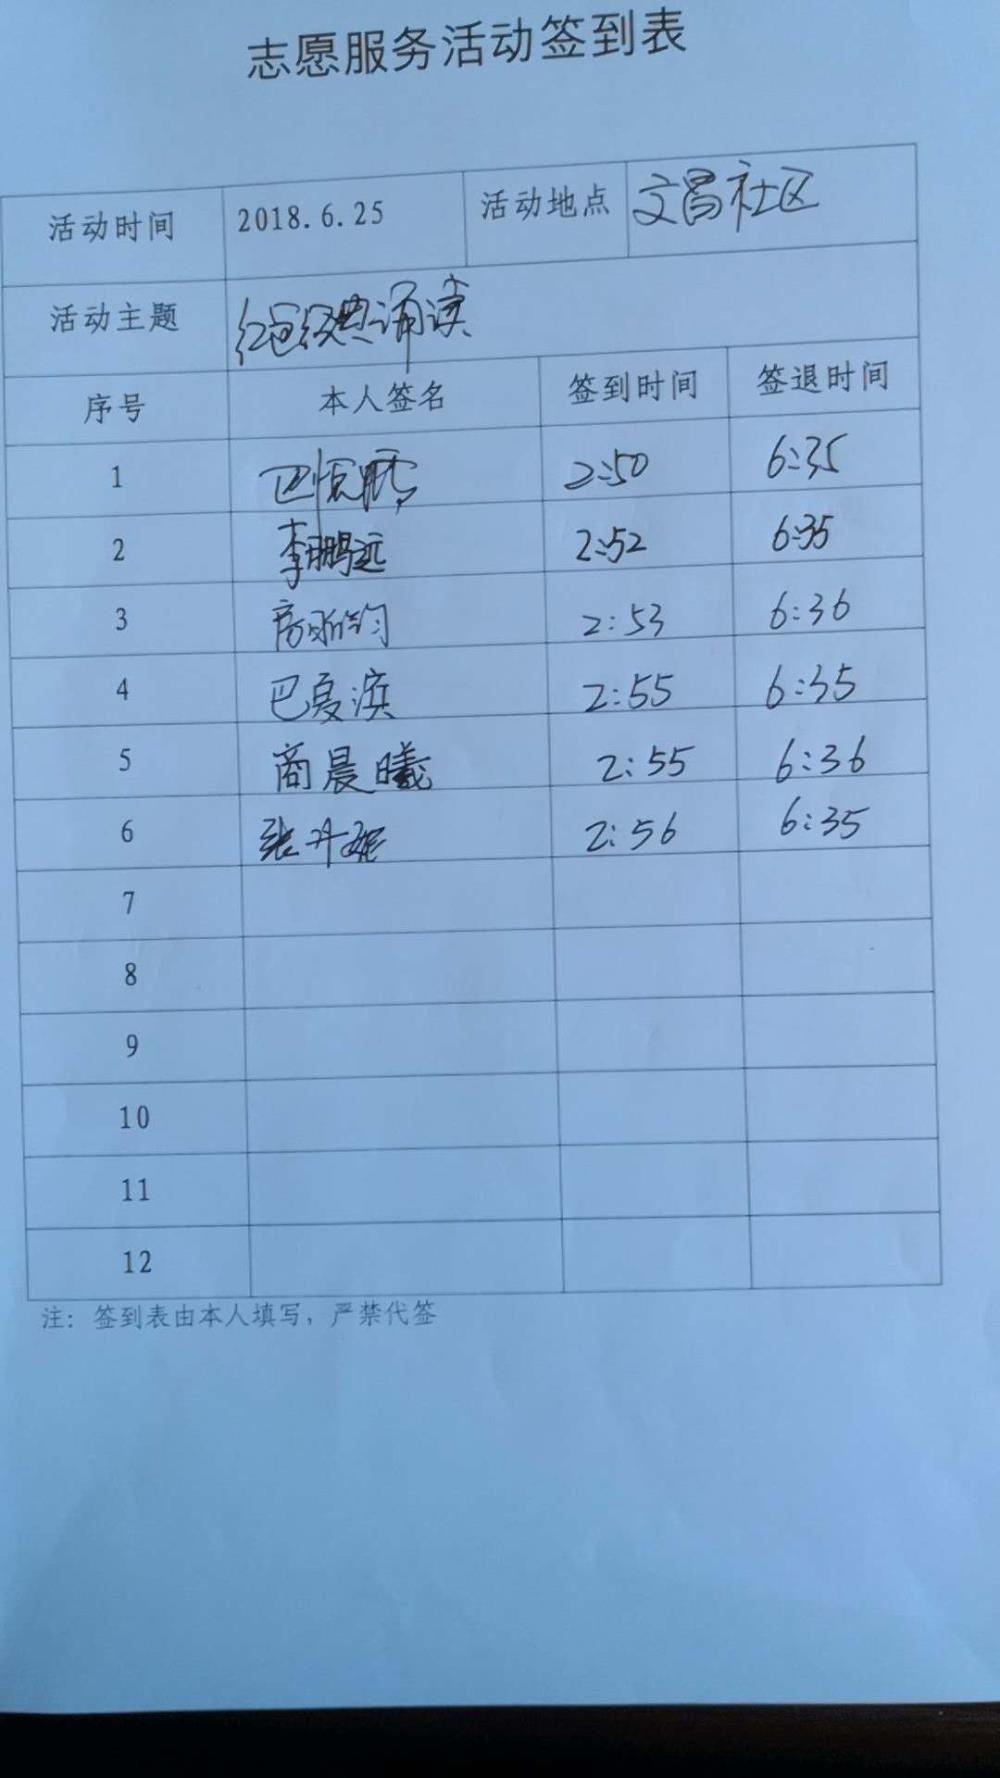 志愿服务活动签到表
活动时间 2018.6.25 活动地点 文昌社区
活动主题 红色经典诵读
序号 本人签名 签到时间 签退时间
1 2:50 6:35
2 李鹏远 2:52 6:35
3 2:53 6:36
4 巴夏滨 2:55 6:35
5 商晨曦 2:55 6:36
6 张升 2:56 6:35
7
8
9
10
11
12
注：签到表由本人填写，严禁代签